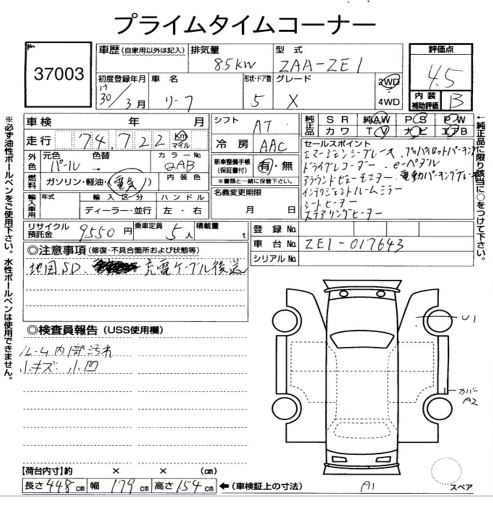 プライムタイムコーナー
37003
車歴 (自家用以外は記入)
排気量
型式
85kW
ZAA-ZE1
評価点
4.5
初度登録年月
車名
形状・ドア数
グレード
H30/3月
リーフ
5
X
2WD
4WD
内装補助評価
B
車検
年
月
シフト
AT
走行
74,722
km
マイル
冷房
AAC
純正品
SR
純AW
PS
PW
カワ
TV
ナビ
エアB
外色
元色
色替
カラーNo
パール
QAB
新車整備手帳(保証書付)
有・無
※書類と一緒に保管下さい。
セールスポイント
エマージェンシーブレーキ、プロパイロットパーキング
ドライブレコーダー、e-ペダル
アラウンドビューモニター、電動パーキングブレーキ
インテリジェントルームミラー
シートヒーター
ステアリングヒーター
燃料
ガソリン・軽油・(電気)
内装色
名義変更期限
月
日
輸入車用
年式
輸入区分
ハンドル
ディーラー・並行
左・右
リサイクル預託金
9550円
乗車定員
5人
積載量
t
登録No.
車台No.
ZE1-017643
シリアルNo.
◎注意事項 (修復・不具合箇所および状態等)
地図SD、充電ケーブル後送
◎検査員報告 (USS使用欄)
ルーム内部汚れ
小キズ 小凹
U1
カバーA2
A1
スペア
【荷台内寸】約
×
×
(cm)
長さ 448cm
幅 179cm
高さ 154cm
←(車検証上の寸法)
※必ず油性ボールペンをご使用下さい。水性ボールペンは使用できません。
←純正品に限り該当に○をつけて下さい。